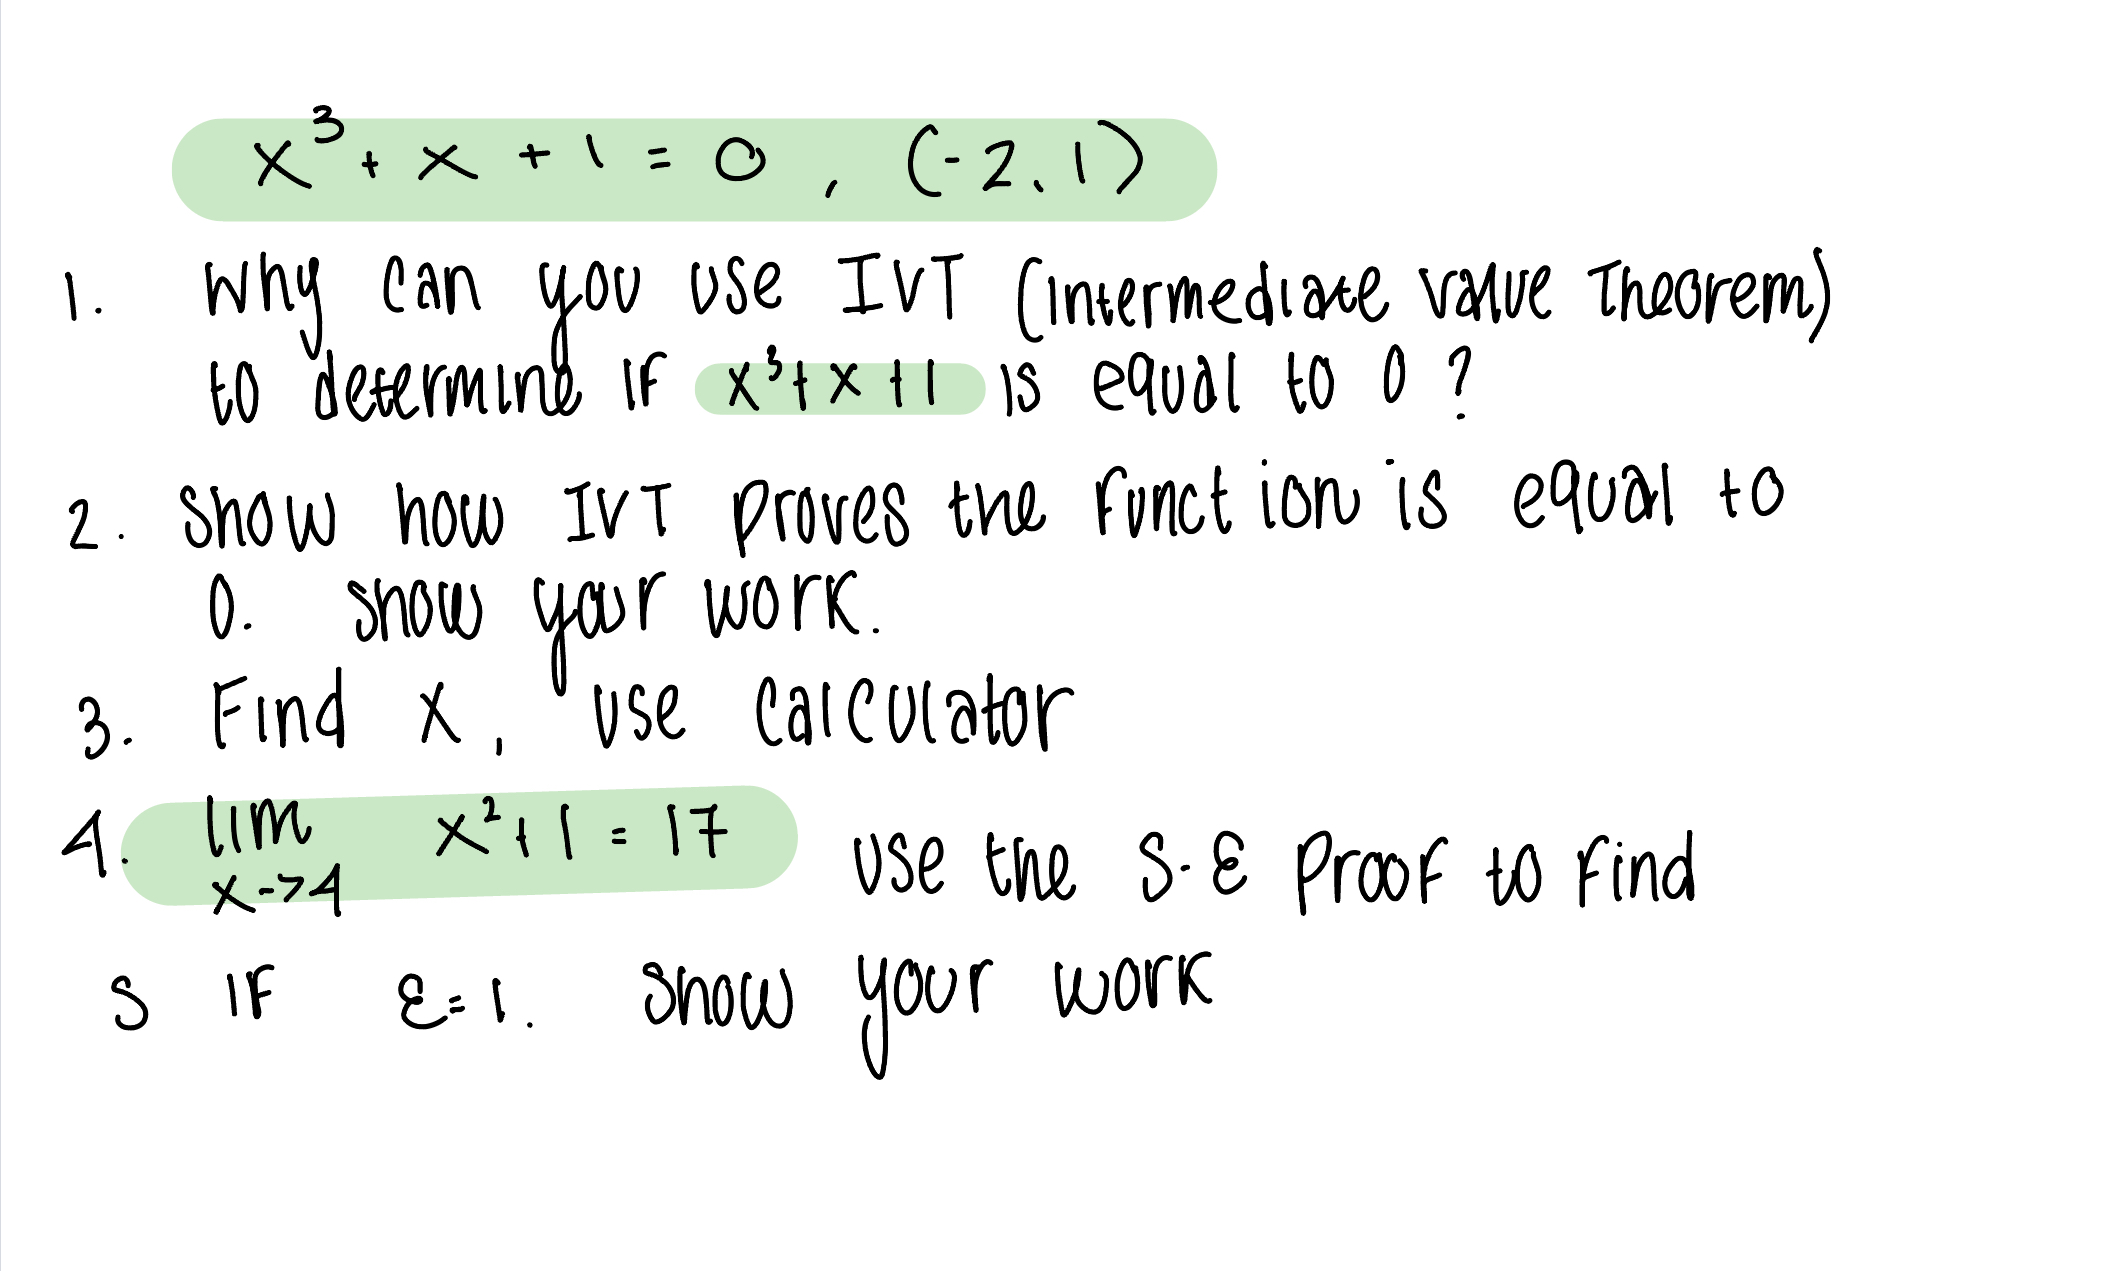 x³ + x + 1 = 0 , (-2, 1)
1. Why can you use IVT (Intermediate Value Theorem)
to determine if x³ + x + 1 is equal to 0 ?
2. Show how IVT proves the function is equal to
0. Show your work.
3. Find x, use calculator
4. lim x² + 1 = 17 Use the S-ε proof to find
x->4
S if ε = 1. Show your work